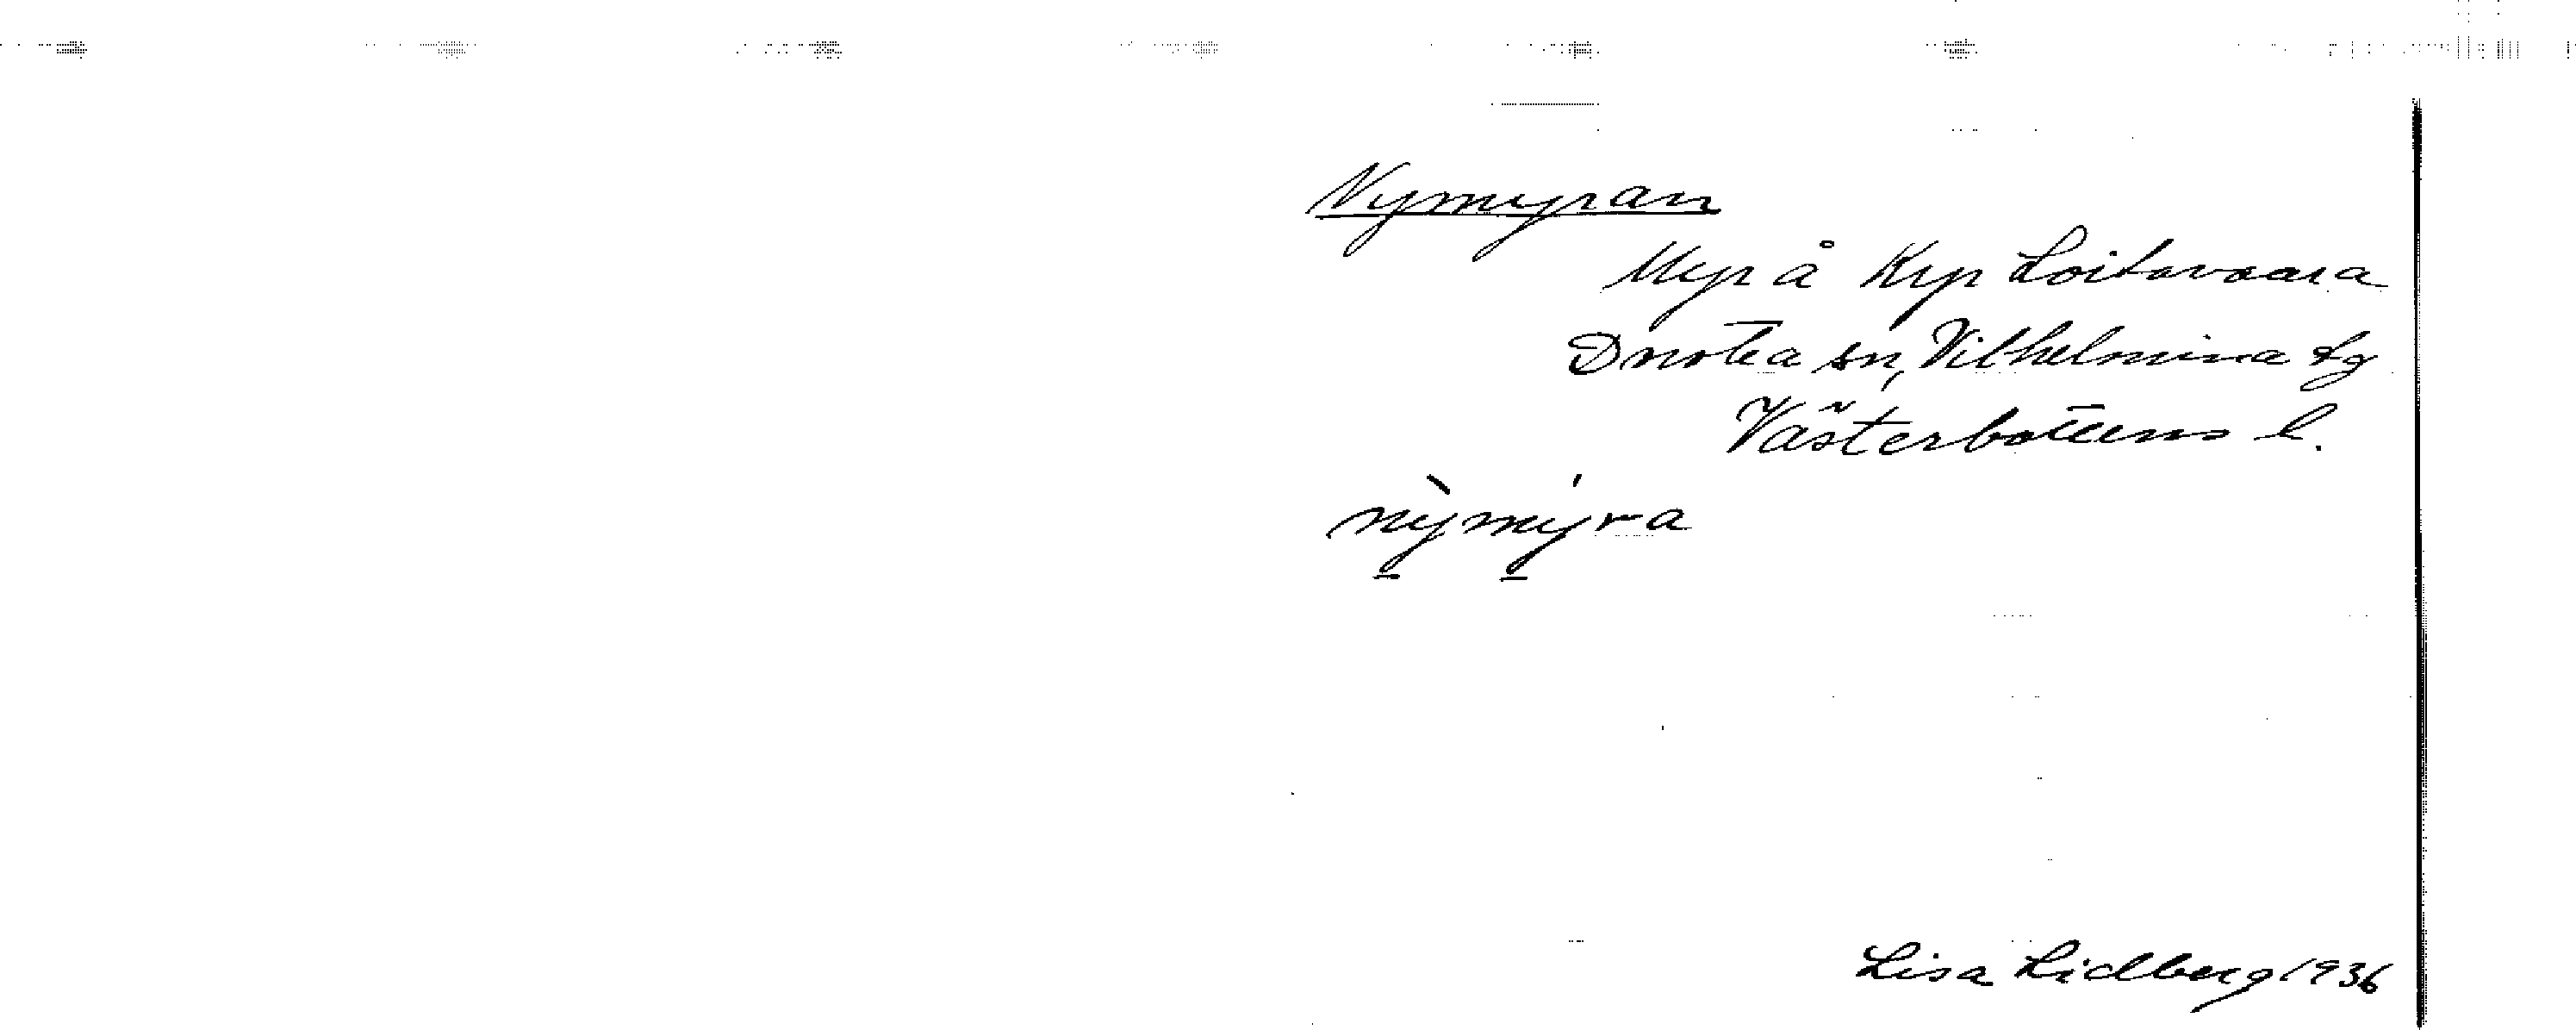 Nymyran
Myr å Krp Loitavaara
Dorotea sn, Vilhelmina tg
Västerbottens l.
nỳmýra
Lisa Lidberg 1936